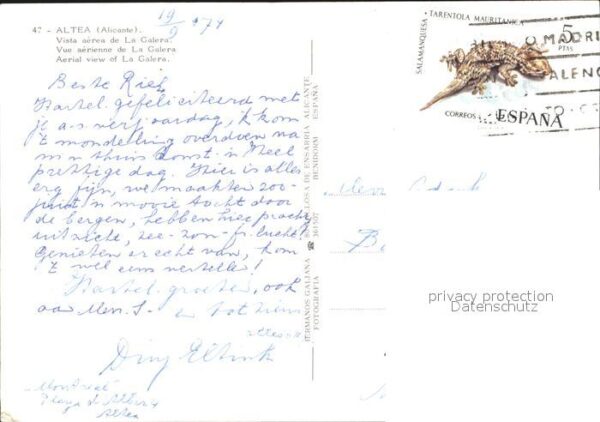 19/9 '74
47 - ALTEA (Alicante).
Vista aérea de La Galera.
Vue aérienne de La Galera
Aerial view of La Galera.
Beste Riek
Hartel. gefeliciteerd met
je a.s. verjaardag, ik kom
't mondeling overdoen na
m'n thuiskomst. 'n Heel
prettige dag. Hier is alles
erg fijn, we maakten zo-
juist 'n mooie tocht door
de bergen, hebben hier pracht
uitzicht, zee-zon-fr. lucht!
Genieten er echt van, kom
't wel eens vertellen!
Hartel. groeten, ook
aan Men. S. en tot ziens
Diny Eltink
Montreal
Playa d'
Altea
HERMANOS GALIANA
FOTOGRAFIA
LOSA DE ENSARRIA ALICANTE
361507 BENIDORM ESPAÑA
SALAMANQUESA
TARENTOLA MAURITANICA
5
PTAS
CORREOS
ESPAÑA
MADRI
ALENC
privacy protection
Datenschutz